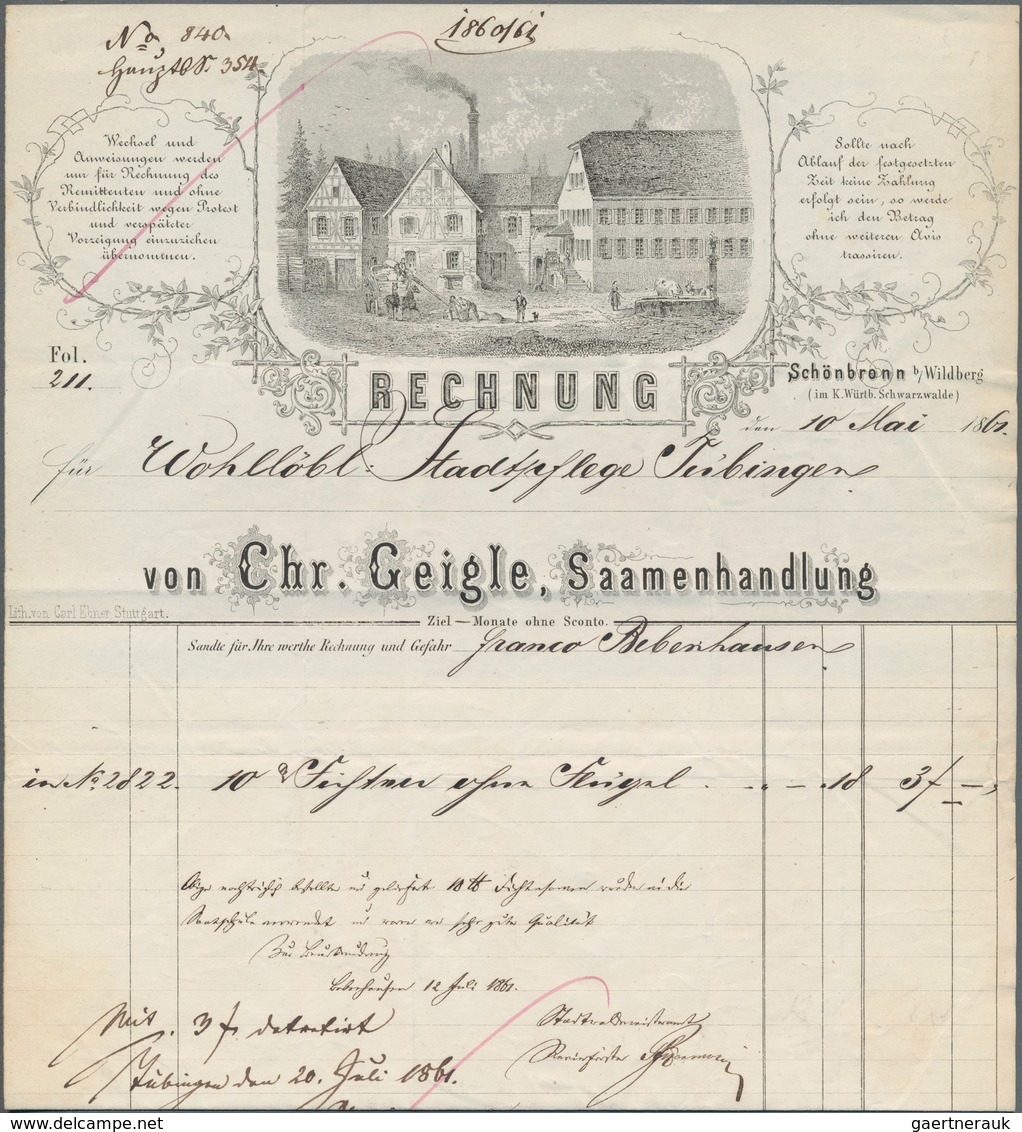 No 840.
1860/61
Hauptb. S. 354
Wechsel und
Anweisungen werden
nur für Rechnung des
Remittenten und ohne
Verbindlichkeit wegen Protest
und verspäteter
Vorzeigung einzuziehen
übernommen.
Sollte nach
Ablauf der festgesetzten
Zeit keine Zahlung
erfolgt sein, so werde
ich den Betrag
ohne weiteren Avis
trassiren.
Fol.
211.
RECHNUNG
Schönbronn b/Wildberg
(im K. Würtb. Schwarzwalde)
den 10 Mai 1861.
für Wohllöbl: Stadtpflege Tübingen
von Chr. Geigle, Saamenhandlung
Lith. von Carl Ebner Stuttgart.
Ziel — Monate ohne Sconto.
Sandte für Ihre werthe Rechnung und Gefahr franco Bebenhausen
in No 2822. 10 Fichten ohne Flügel . . – .18 3 f – ,
bestellte und gelieferte 10 ℔ Fichtensamen wurden in die
Saatschule verwendet und waren von sehr guter Qualität
Zur Beurkundung
Bebenhausen 12 Juli 1861.
Stadtwaldmeisteramt
Revierförster
Mit . 3 f. dekretirt
Tübingen den 20. Juli 1861.
gaertnerauk